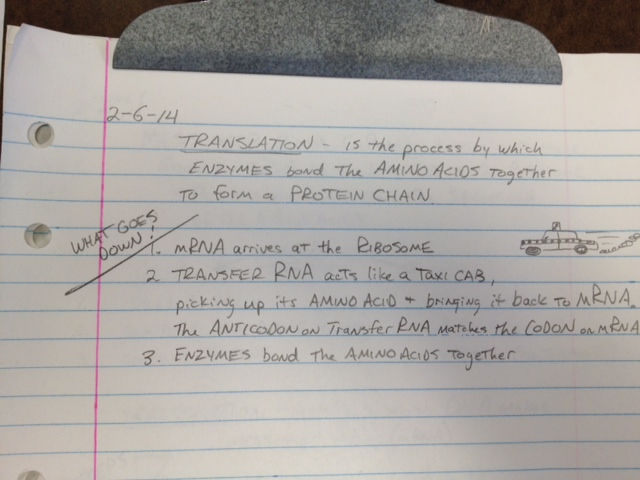 2-6-14
TRANSLATION - is the process by which
ENZYMES bond The AMINO ACIDS Together
To form a PROTEIN CHAIN
WHAT GOES
DOWN!
1. mRNA arrives at the RIBOSOME
2 TRANSFER RNA acts like a Taxi CAB,
picking up its AMINO ACID + bringing it back to mRNA.
The ANTICODON on Transfer RNA matches the CODON on mRNA
3. ENZYMES bond The AMINO ACIDS Together